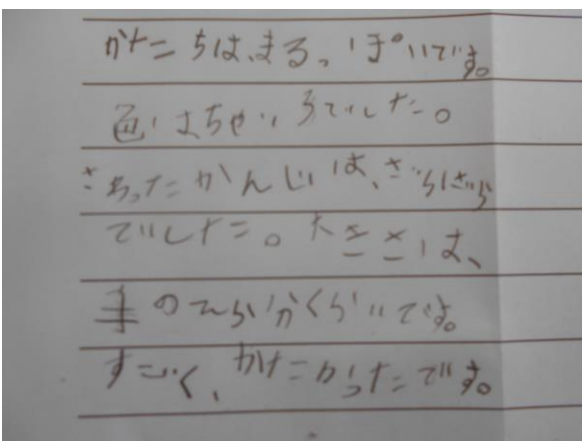 かたちは、まる。ぽいです。
色はちゃいろでした。
さわったかんじは、ざらざら
でした。大きさは、
手のひらかくらいです。
すごく、かたかったです。